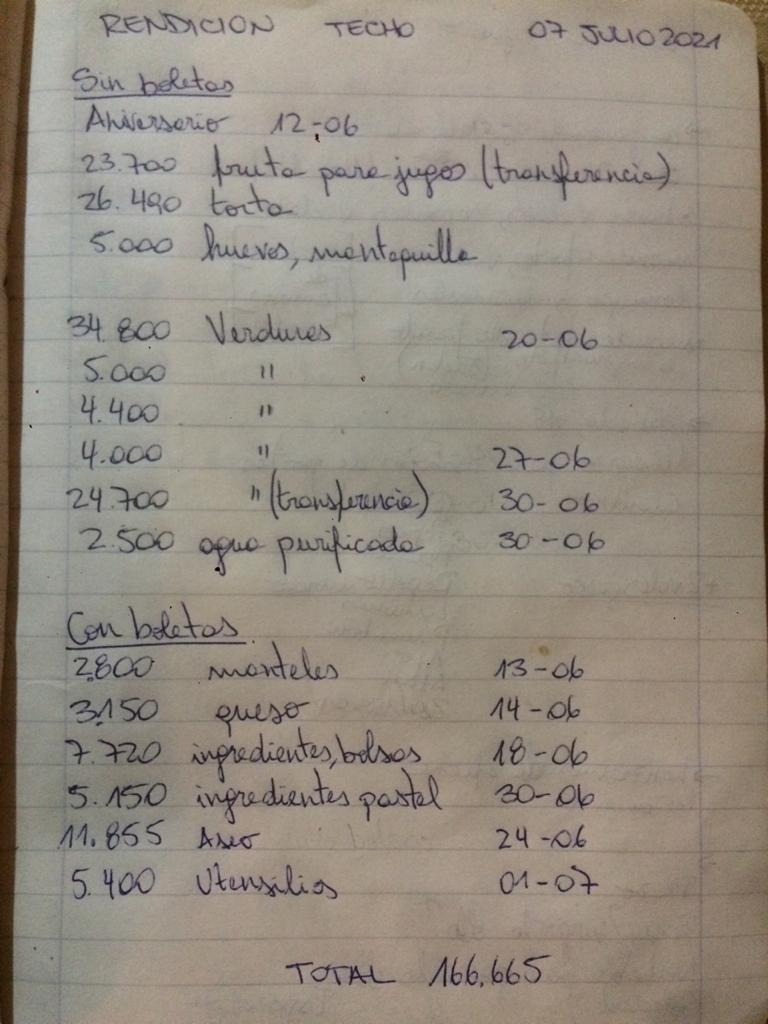 RENDICION TECHO 07 JULIO 2021
Sin boletas
Aniversario 12-06
23.700 fruta para jugos (transferencia)
26.490 torta
5.000 huevos, mantequilla
34.800 Verduras 20-06
5.000 "
4.400 "
4.000 " 27-06
24.700 " (transferencia) 30-06
2.500 agua purificada 30-06
Con boletas
2.800 manteles 13-06
3.150 queso 14-06
7.720 ingredientes, bolsas 18-06
5.150 ingredientes pastel 30-06
11.855 Aseo 24-06
5.400 Utensilios 01-07
TOTAL 166.665